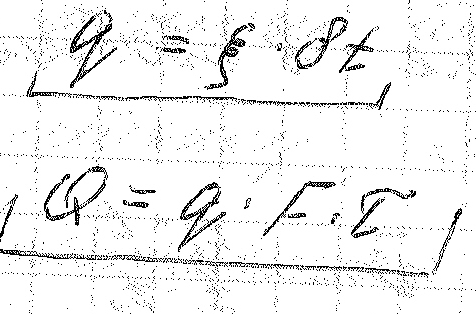 q = ξ · δt
Q = q · F · τ